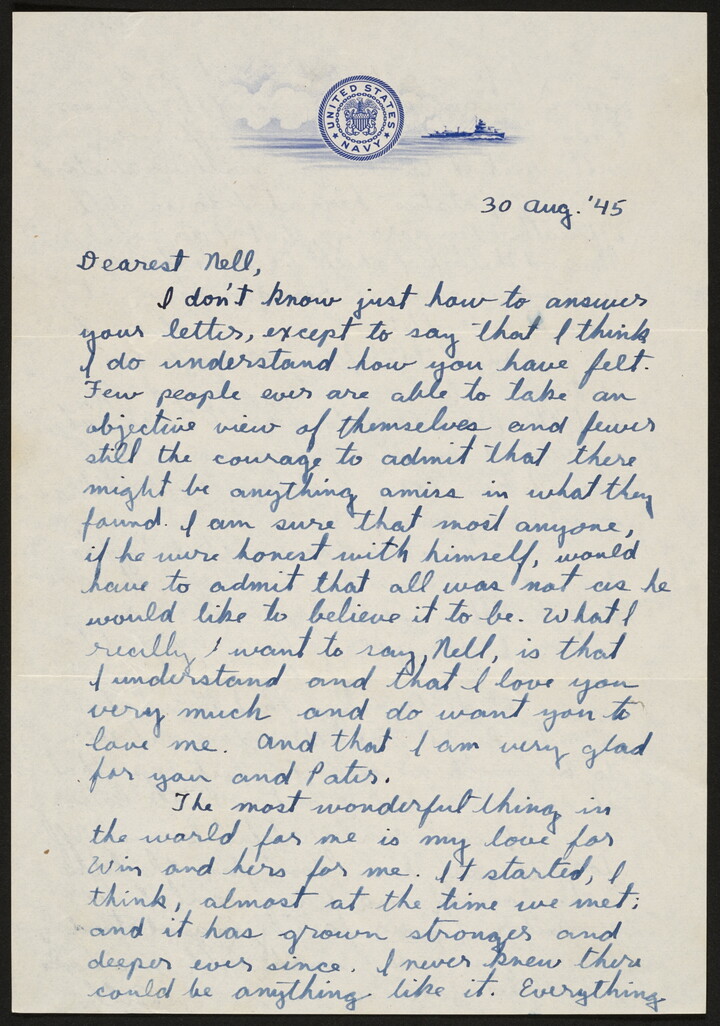 UNITED STATES NAVY
30 Aug. '45
Dearest Nell,
I don't know just how to answer
your letter, except to say that I think
I do understand how you have felt.
Few people ever are able to take an
objective view of themselves and fewer
still the courage to admit that there
might be anything amiss in what they
found. I am sure that most anyone,
if he were honest with himself, would
have to admit that all was not as he
would like to believe it to be. What I
really want to say, Nell, is that
I understand and that I love you
very much and do want you to
love me. And that I am very glad
for you and Peter.
The most wonderful thing in
the world for me is my love for
Win and hers for me. It started, I
think, almost at the time we met;
and it has grown stronger and
deeper ever since. I never knew there
could be anything like it. Everything